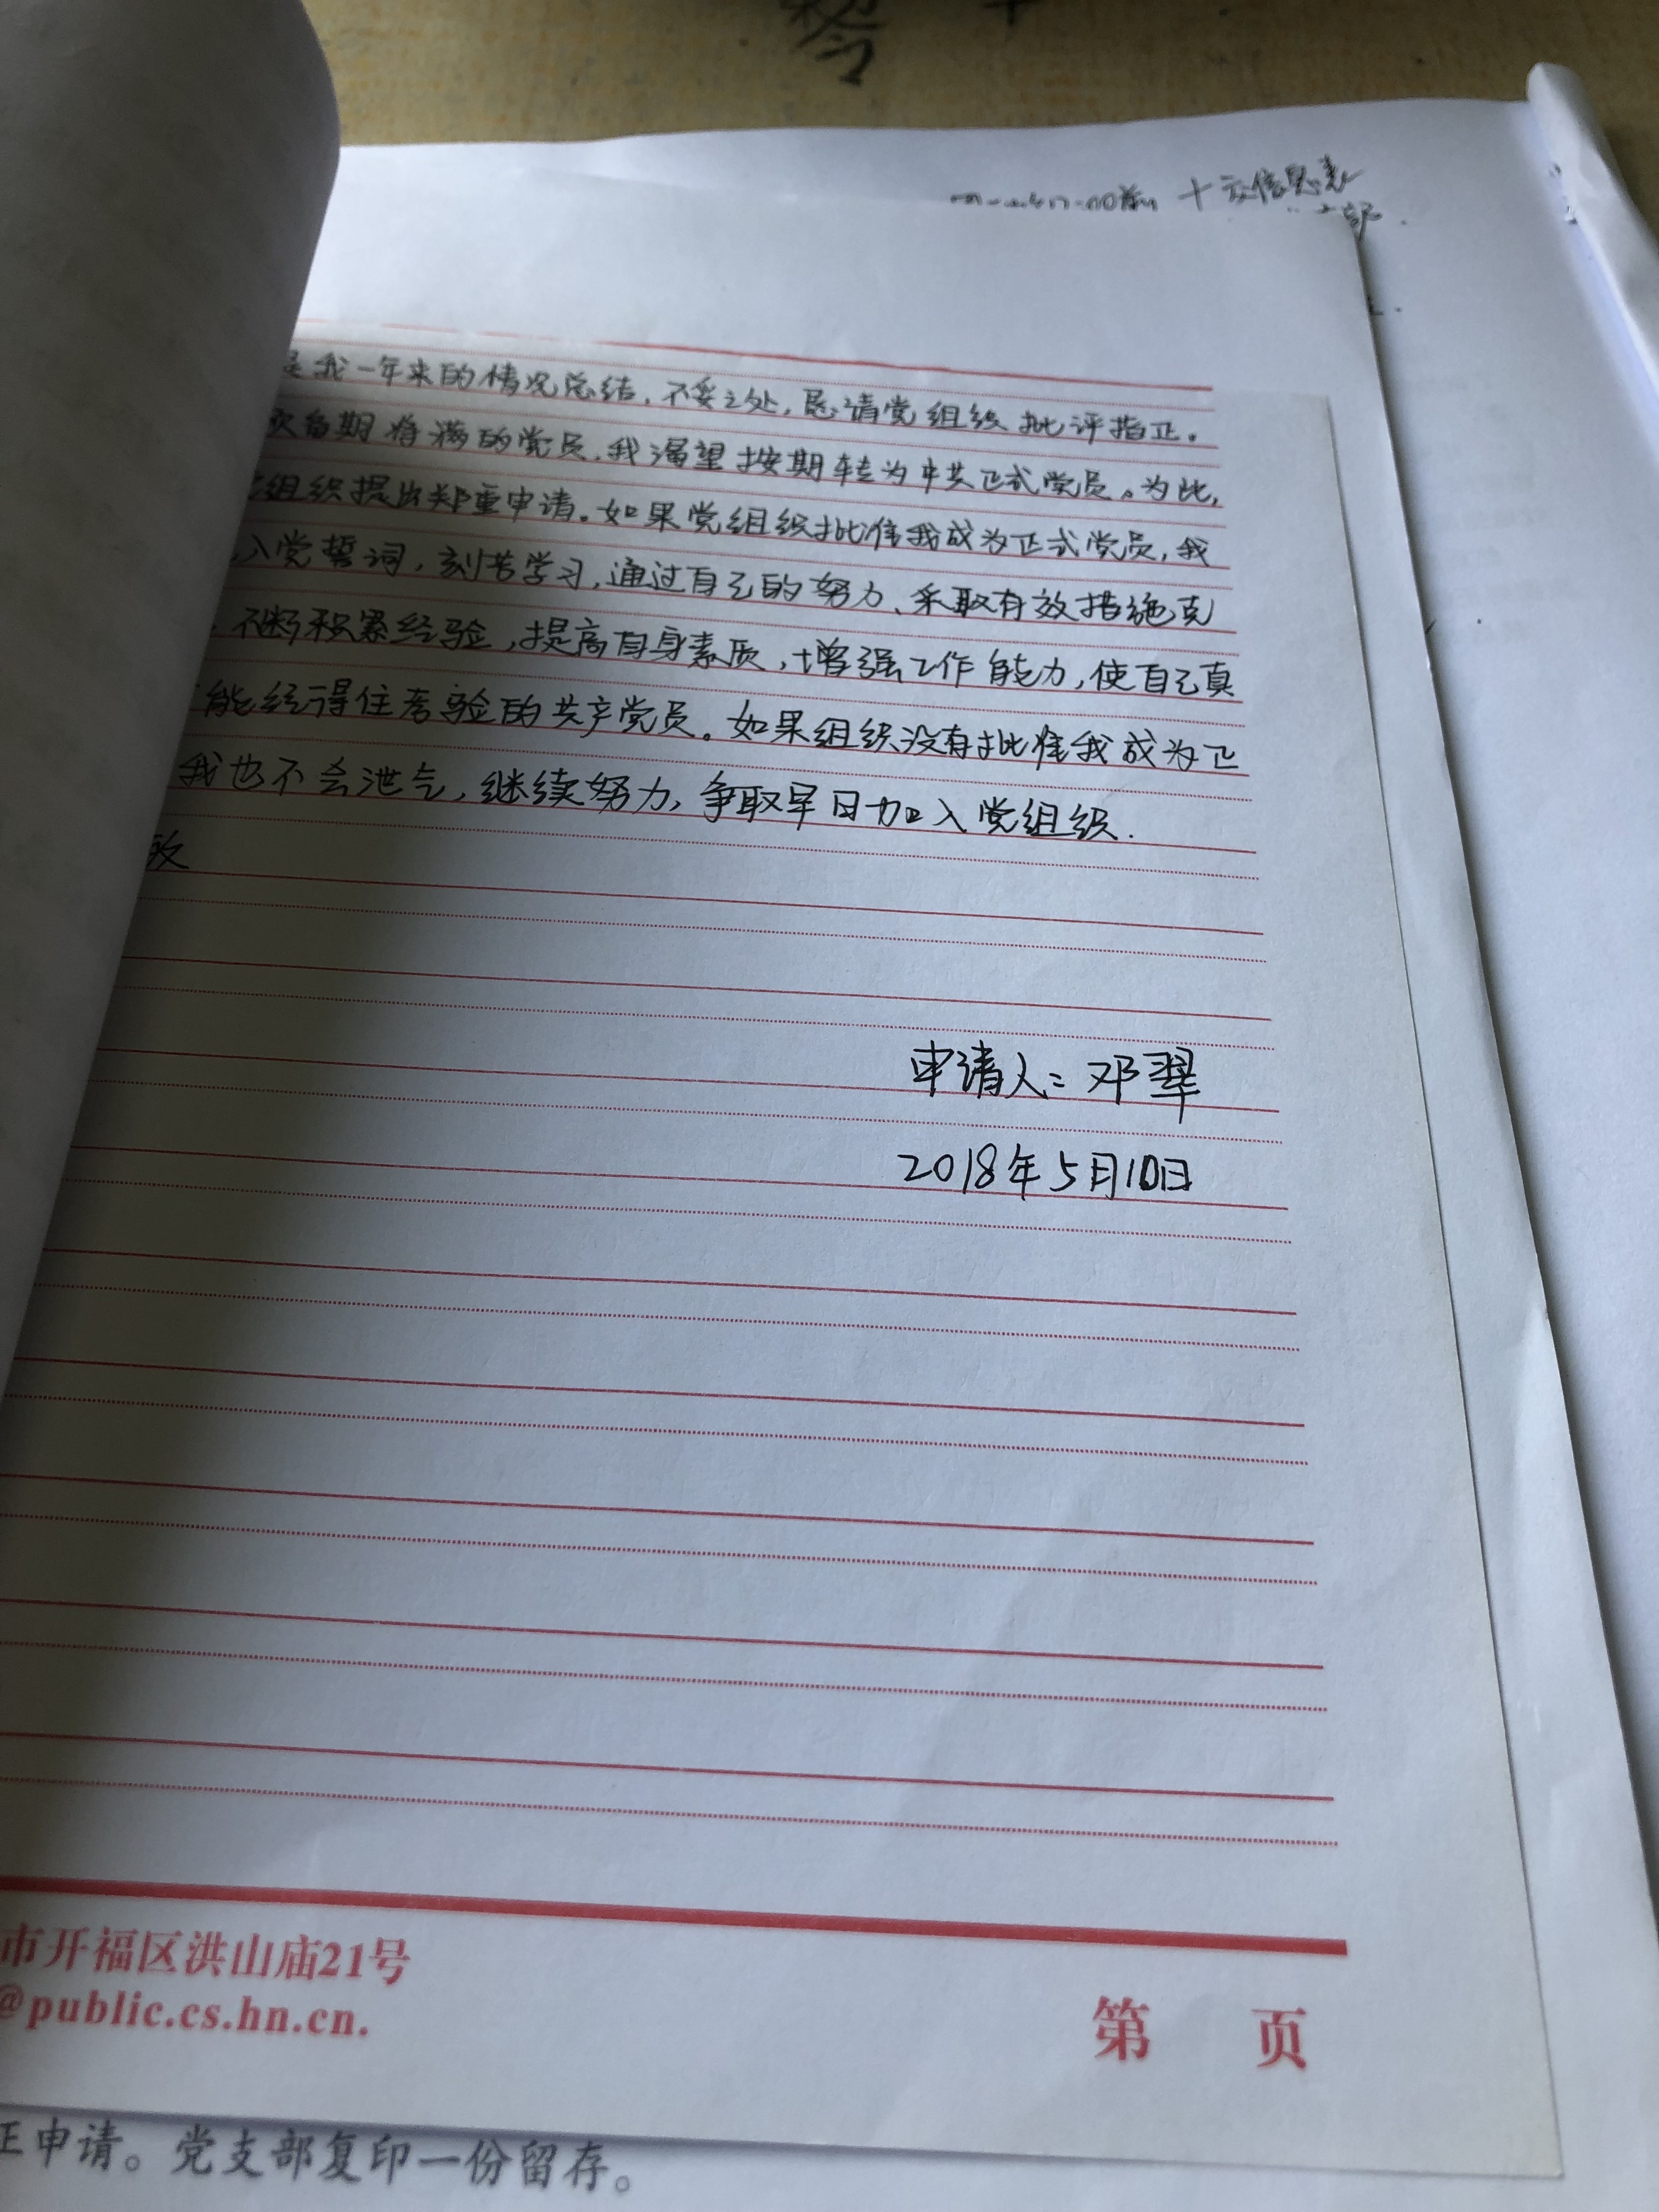 我一年来的情况总结，不妥之处，恳请党组织批评指正。
备期将满的党员，我渴望按期转为中共正式党员。为此，
组织提出郑重申请。如果党组织批准我成为正式党员，我
入党誓词，刻苦学习，通过自己的努力、采取有效措施克
不断积累经验，提高自身素质，增强工作能力，使自己真
能经得住考验的共产党员。如果组织没有批准我成为正
我也不会泄气，继续努力，争取早日加入党组织.
致
申请人：邓翠
2018年5月10日
市开福区洪山庙21号
@public.cs.hn.cn.
第 页
正申请。党支部复印一份留存。